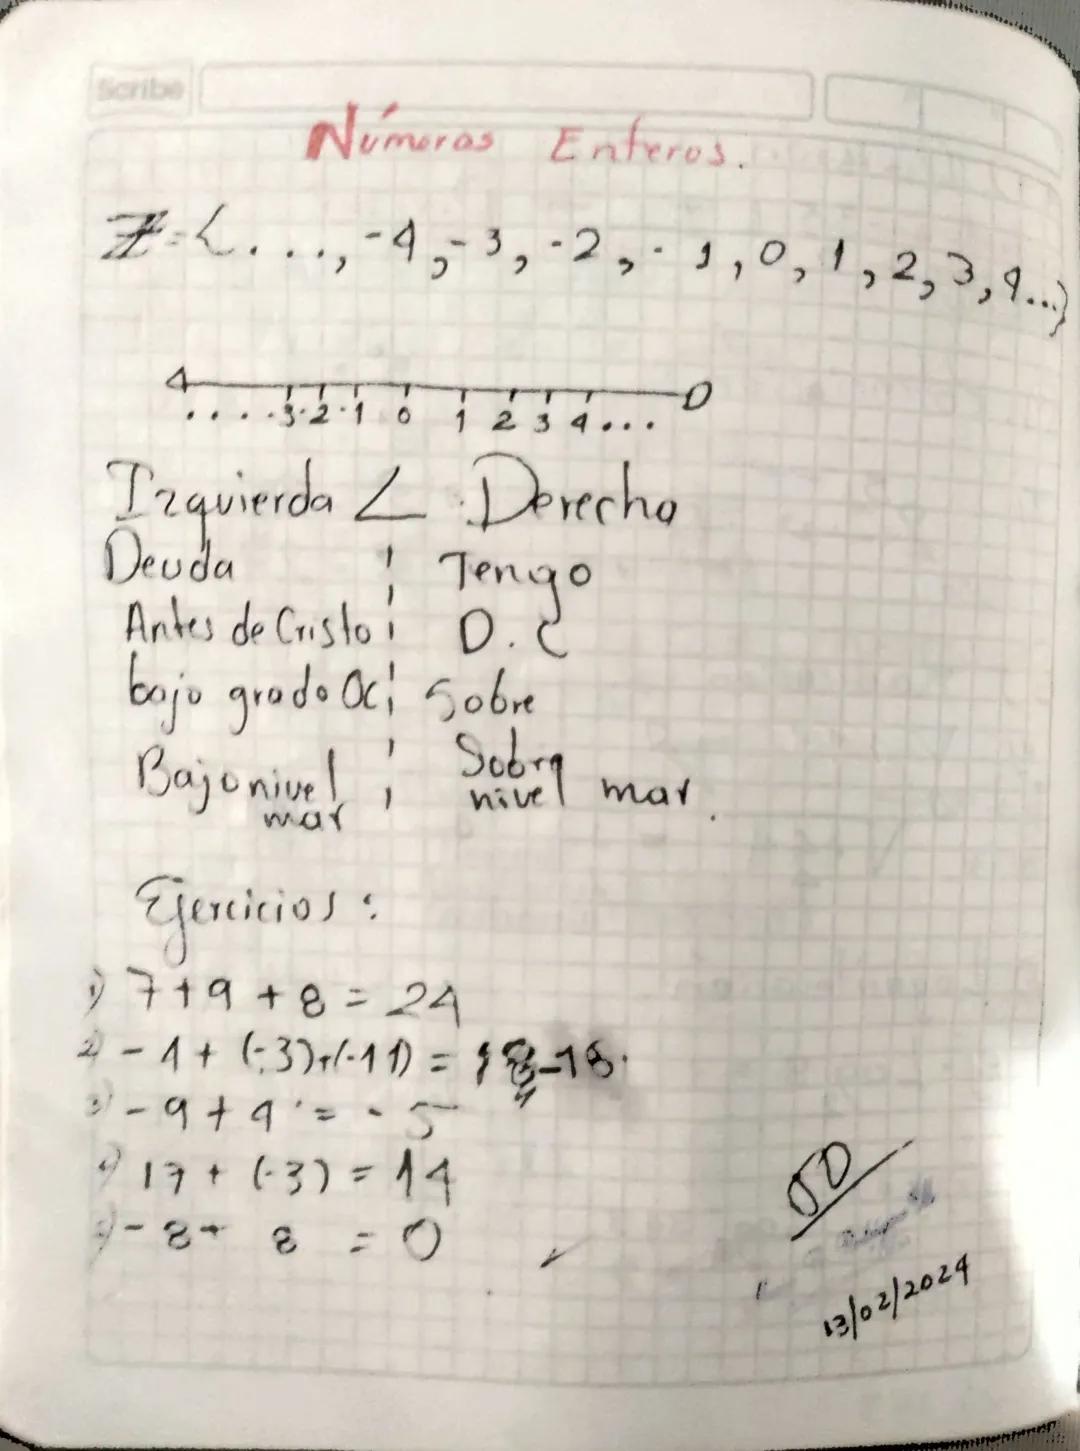 Scribe
Números Enteros.
Z={...,-4,-3,-2,-1,0,1,2,3,4...}
....-3-2-1 0 1 2 3 4...
Izquierda < Derecha
Deuda ¦ Tengo
Antes de Cristo ¦ D.C
bajo grado 0c ¦ Sobre
Bajo nivel mar ¦ Sobre nivel mar.
Ejercicios:
1) 7+9+8=24
2) -4+(-3)+(-11)= -18.
3) -9+4=-5
4) 17+(-3)=14
5) -8+8=0
13/02/2024